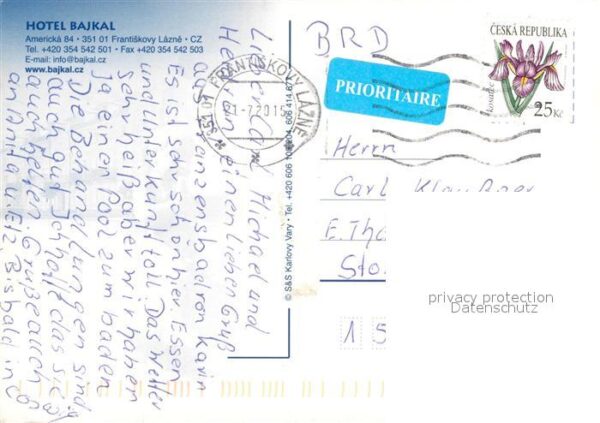 HOTEL BAJKAL
Americká 84 • 351 01 Františkovy Lázně • CZ
Tel. +420 354 542 501 • Fax +420 354 542 503
E-mail: info@bajkal.cz
www.bajkal.cz
Michael und
einen lieben Gruß
aus Franzensbad von Karin
Es ist sehr schön hier. Essen
und Unterkunft toll. Das Wetter
sehr heiß aber wir haben
ja einen Pool zum baden
Die Behandlungen sind
auch gut Ich hoffe das sie
auch helfen. Grüße auch
an Anita u. Bis bald in
© S&S Karlovy Vary • Tel. +420 606 414 67
351 01 FRANTIŠKOVY LÁZNĚ
BRD
PRIORITAIRE
ČESKÁ REPUBLIKA
kosatec
25 Kč
Herrn
Carl
E. Tho
Sto
15
privacy protection
Datenschutz